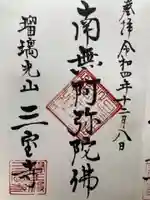 奉拝 令和四年十二月八日
南無阿弥陀佛
瑠璃光山 三宝寺